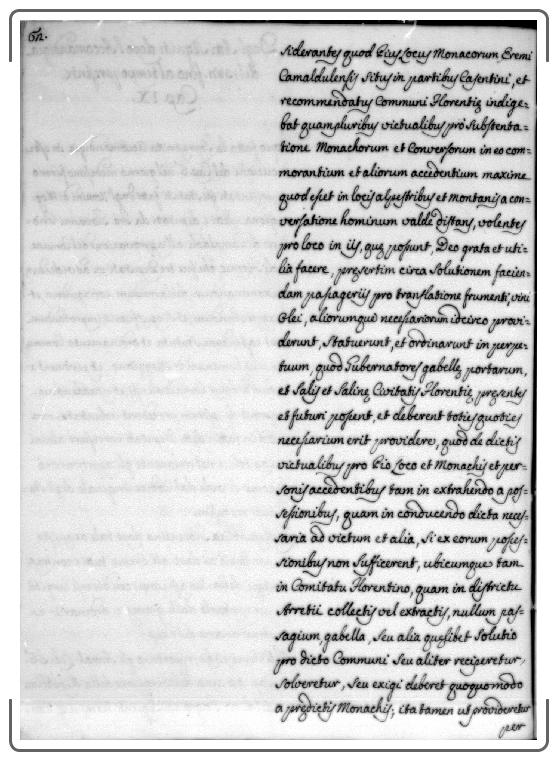 62.
siderantes quod Pius Locus Monacorum Eremi
Camaldulensis situs in partibus Casentini, et
recommendatus Communi Florentię indige-
bat quampluribus victualibus prò substenta-
tione Monachorum et Conversorum in eo com-
morantium et aliorum accedentium maxime
quod esset in locis alpestribus et montanis a con-
versatione hominum valdè distans, volentes
pro loco in iis, quę possunt, Deo grata et uti-
lia facere, pręsertim circa solutionem facien-
dam passageriis pro translatione frumenti, vini
Olei, aliorumque necessariorum idcirco provi-
derunt, statuerunt, et ordinarunt in perpe-
tuum, quod Gubernatores gabellę portarum,
et Salis et Salinę Civitatis Florentię pręsentes
et futuri possent, et deberent toties quoties
necessarium erit providere, quod de dictis
victualibus pro Pio Loco et Monachis et per-
sonis accedentibus tam in extrahendo a pos-
sessionibus, quam in conducendo dicta neces-
saria ad victum et alia, si ex eorum posses-
sionibus non sufficerent, ubicumque tam
in Comitatu Florentino, quam in districtu
Arretii collectis vel extractis, nullum pas-
sagium, gabella, seu alia quęlibet solutio
pro dicto Communi seu aliter reciperetur,
solveretur, seu exigi deberet quoquomodo
a prędictis Monachis; ita tamen ut provideretur
per